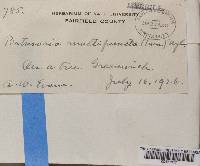 785.
HERBARIUM OF YALE UNIVERSITY
FAIRFIELD COUNTY
Pertusaria multipuncta (Turn.) Nyl.
On a tree. Greenwich.
A. W. Evans. July 16, 1926.